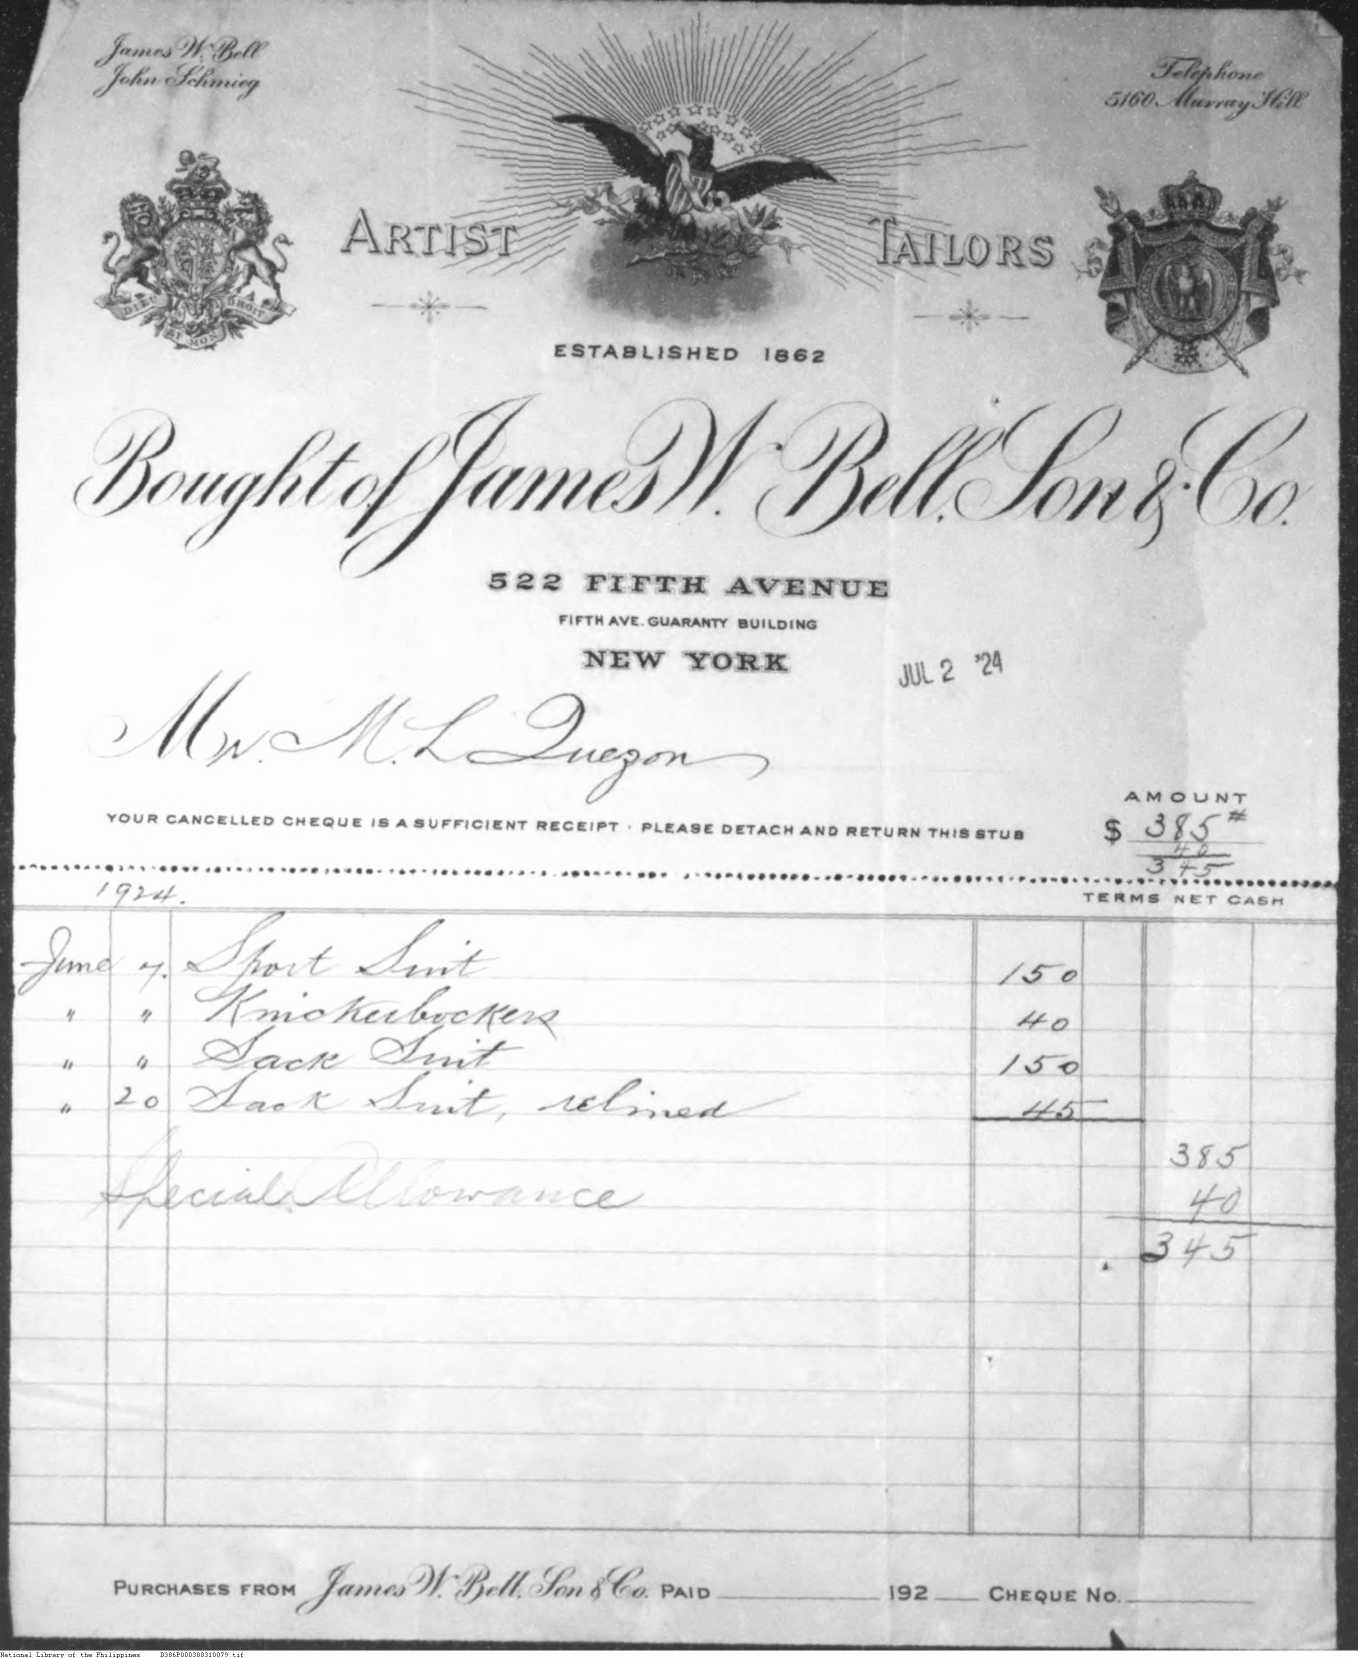 James W. Bell
John Schmieg
Telephone
5160 Murray Hill
DIEU ET MON DROIT
ARTIST TAILORS
ESTABLISHED 1862
Bought of James W. Bell, Son & Co.
522 FIFTH AVENUE
FIFTH AVE. GUARANTY BUILDING
NEW YORK
JUL 2 '24
Mr. M. L Quezon
AMOUNT
YOUR CANCELLED CHEQUE IS A SUFFICIENT RECEIPT · PLEASE DETACH AND RETURN THIS STUB $ 385 #
40
345
1924.
TERMS NET CASH
June 7. Sport Suit 150
" " Knickerbockers 40
" " Sack Suit 150
" 20 Sack Suit, relined 45
385
Special Allowance 40
345
PURCHASES FROM James W. Bell, Son & Co. PAID 192 CHEQUE NO.
National Library of the Philippines D386P000380310079.tif